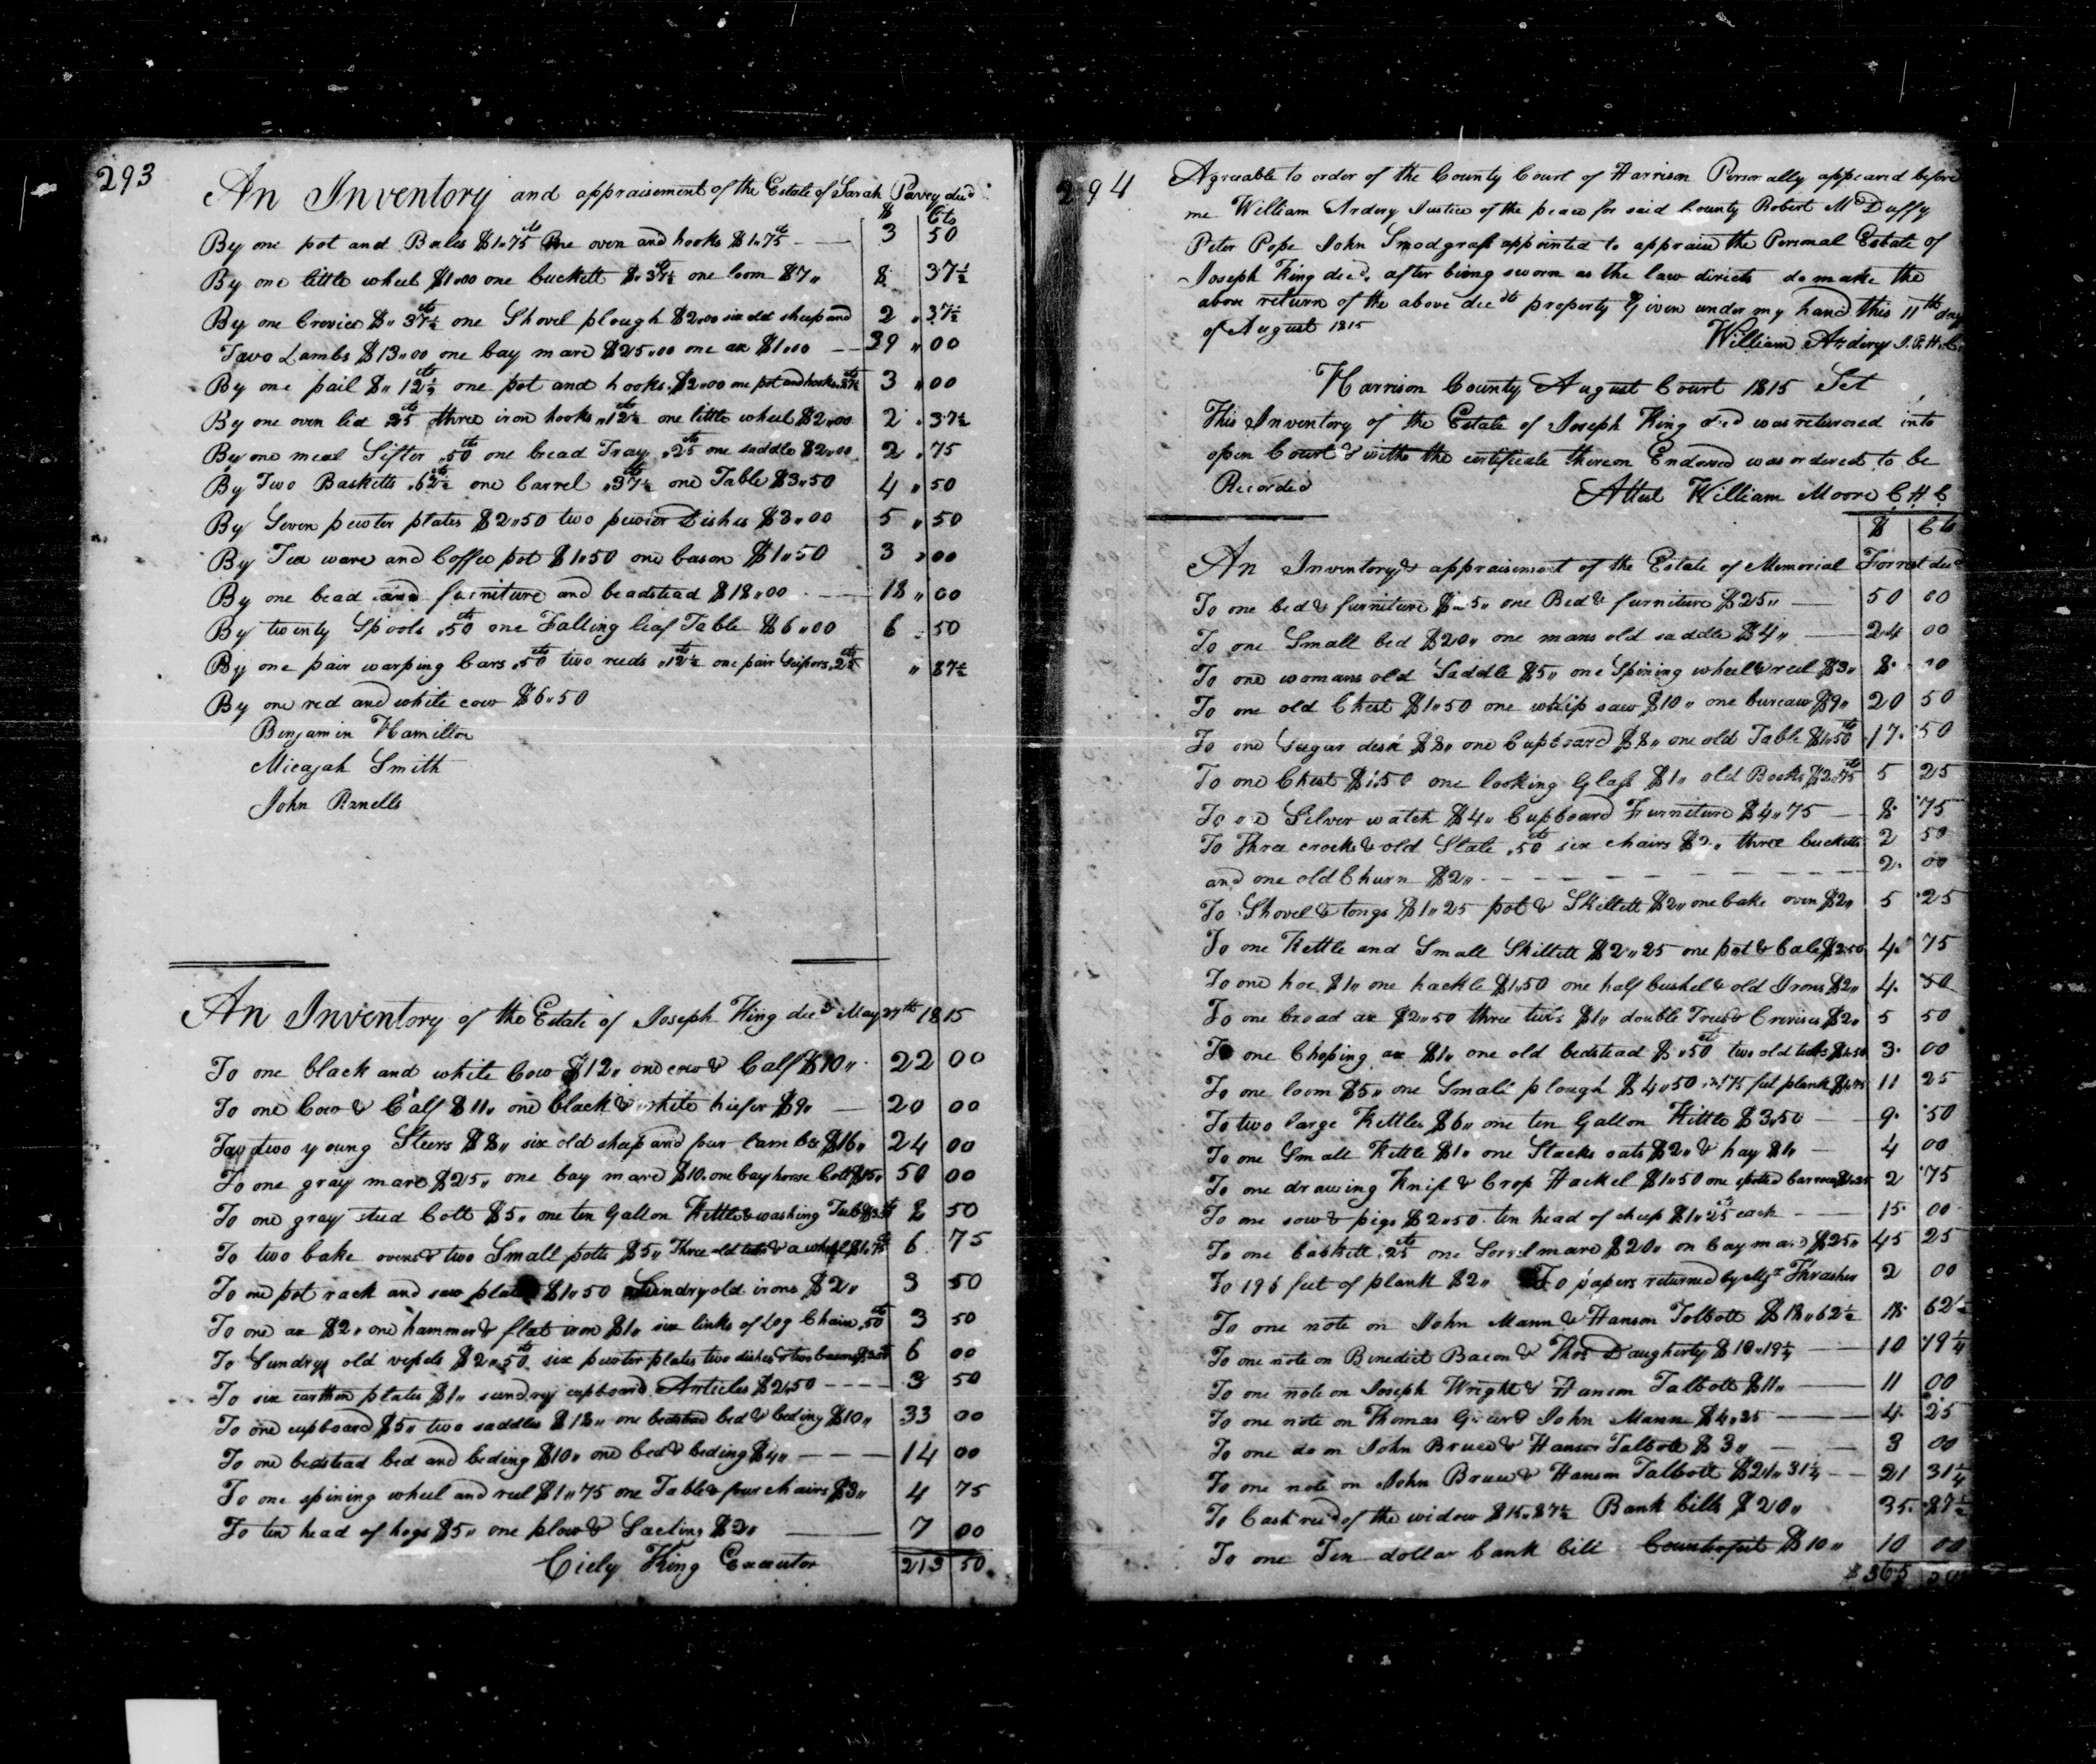 293
An Inventory and appraisement of the Estate of Sarah Pavey decd
$ Cts
By one pot and Bales $1„75 cts One oven and hooks $1„75 cts 3 50
By one little wheel $1„00 one buckett $„37½ cts one loom $7„ 8 37½
By one Crevice $„37½ cts one Shovel plough $2„00 six old sheep and 2 „ 37½
Two Lambs $13„00 one bay mare $25„00 one ax $1„00 39 „ 00
By one pail $„12½ cts one pot and hooks $2„00 one pot and hooks „87½ cts 3 „ 00
By one oven lid 25 cts three iron hooks „12½ cts one little wheel $2„00 2 . 37½
By one meal Sifter „50 cts one bread Tray „25 cts one saddle $2„00 2 . 75
By Two Basketts „62½ cts one barrel „37½ cts one Table $3„50 4 „ 50
By Seven pewter plates $2„50 two pewter Dishes $3„00 5 „ 50
By Tea ware and Coffee pot $1„50 one bason $1„50 3 „ 00
By one bead and furniture and beadstead $18„00 18 „ 00
By twenty Spools „50 cts one Falling leaf Table $6„00 6 . 50
By one pair warping bars „50 cts two reeds „12½ cts one pair Scissors „25 cts „ 87½
By one red and white cow $6„50
Benjamin Hamilton
Micajah Smith
John Renells
An Inventory of the Estate of Joseph King decd May 27th 1815
To one black and white Cow $12„ one cow & Calf $10„ 22 00
To one Cow & Calf $11„ one black & white hiefer $9„ 20 00
To two young Steers $8„ six old sheep and four lambs $16„ 24 00
To one gray mare $25„ one bay mare $10„ one bay horse Colt $15„ 50 00
To one gray stud Colt $5„ one ten Gallon Kettle & washing Tub $3„50 8 50
To two bake ovens & two Small potts $5„ Three old tubs & a wheel $1„75 cts 6 75
To one pot rack and saw plate $1„50 Sundry old irons $2„ 3 50
To one ax $2„ one hammer & flat iron $1„ six links of Log Chain „50 cts 3 50
To Sundrys old vessels $2„50 cts six pewter plates two dishes & two basons $3„50 6 00
To six earthen plates $1„ sundry cupboard Articles $2„50 3 50
To one cupboard $5„ two saddles $18„ one bedstead bed & beding $10„ 33 00
To one bedstead bed and beding $10„ one bed & beding $4„ 14 00
To one spining wheel and reel $1„75 one Table & four chairs $3„ 4 75
To ten head of hogs $5„ one plow & Gacting $2„ 7 00
Cicly King Executor 213 50
294
Agreable to order of the County Court of Harrison Personally appeared before
me William Ardery Justice of the peace for said County Robert McDuffy
Peter Pope John Snodgrass appointed to appraise the Personal Estate of
Joseph King decd. after being sworn as the law directs do make the
above return of the above decdts property Given under my hand this 11th day
of August 1815
William Ardery J.P.H.C.
Harrison County August Court 1815 Sct
This Inventory of the Estate of Joseph King decd was returned into
open Court & with the certificate thereon Endorsed was ordered to be
Recorded
Attest William Moore C H C
$ Cts
An Inventory & appraisement of the Estate of Memorial Forrest decd
To one bed & furniture $25„ one Bed & furniture $25„ 50 00
To one Small bed $20„ one mans old saddle $4„ 24 00
To one womans old Saddle $5„ one Spining wheel & reel $3„ 8 00
To one old Chest $1„50 one whip saw $10„ one bureaw $9„ 20 50
To one Sugar desk $8„ one Cupboard $8„ one old Table $1„50 cts 17 50
To one Chest $1„50 one looking Glass $1„ old Books $2„75 cts 5 25
To one Silver watch $4„ Cupboard Furniture $4„75 8 75
To Three crocks & old Slate „50 cts six chairs $2„ three bucketts 2 50
and one old Churn $2„ 2 00
To Shovel & tongs $1„25 pot & Skillett $2„ one bake oven $2„ 5 25
To one Kettle and Small Skillett $2„25 one pot & bale $2„50 4 75
To one hoe $1„ one hackle $1„50 one half bushel & old Irons $2„ 4 50
To one broad ax $2„50 three tubs $1„ double Trees & Crevises $2„ 5 50
To one Choping ax $1„ one old bedstead $„50 cts two old tubs $1„50 3 00
To one loom $5„ one Small plough $4„50 175 feet plank $1„75 11 25
To two large Kettles $6„ one ten Gallon Kittle $3„50 9 50
To one Small Kittle $1„ one Stacks oats $2„ & hay $1„ 4 00
To one drawing Knife & Crop Hackel $1„50 one spotted barrow $1„25 2 75
To one sow & pigs $2„50 ten head of sheep $1„25 cts each 15 00
To one baskett „25 cts one Sorrel mare $20„ on bay mare $25„ 45 25
To 196 feet of plank $2„ To papers returned by Mrs Thrasher 2 00
To one note on John Mann & Hanson Tolbott $18„62½ 18 62½
To one note on Benedict Bacon & Thos Daugherty $10„19¼ 10 19¼
To one note on Joseph Wright & Hanson Talbott $11„ 11 00
To one note on Thomas Greer & John Mann $4„25 4 25
To one do on John Bruce & Hanson Talbott $3„ 3 00
To one note on John Bruce & Hanson Talbott $21„31¼ 21 31¼
To Cash recd of the widow $15„87½ Bank bills $20„ 35 87½
To one Ten dollar bank bill Counterfeit $10„ 10 00
$365